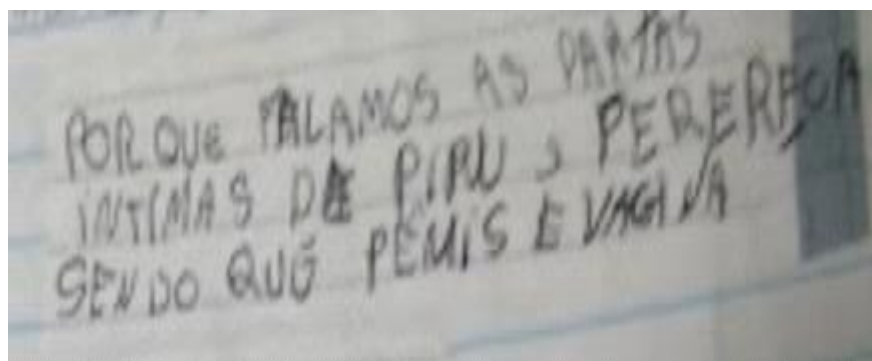 POR QUE FALAMOS AS PARTAS
INTIMAS DE PIRU, PERERECA
SENDO QUE PÊMIS E VAGINA